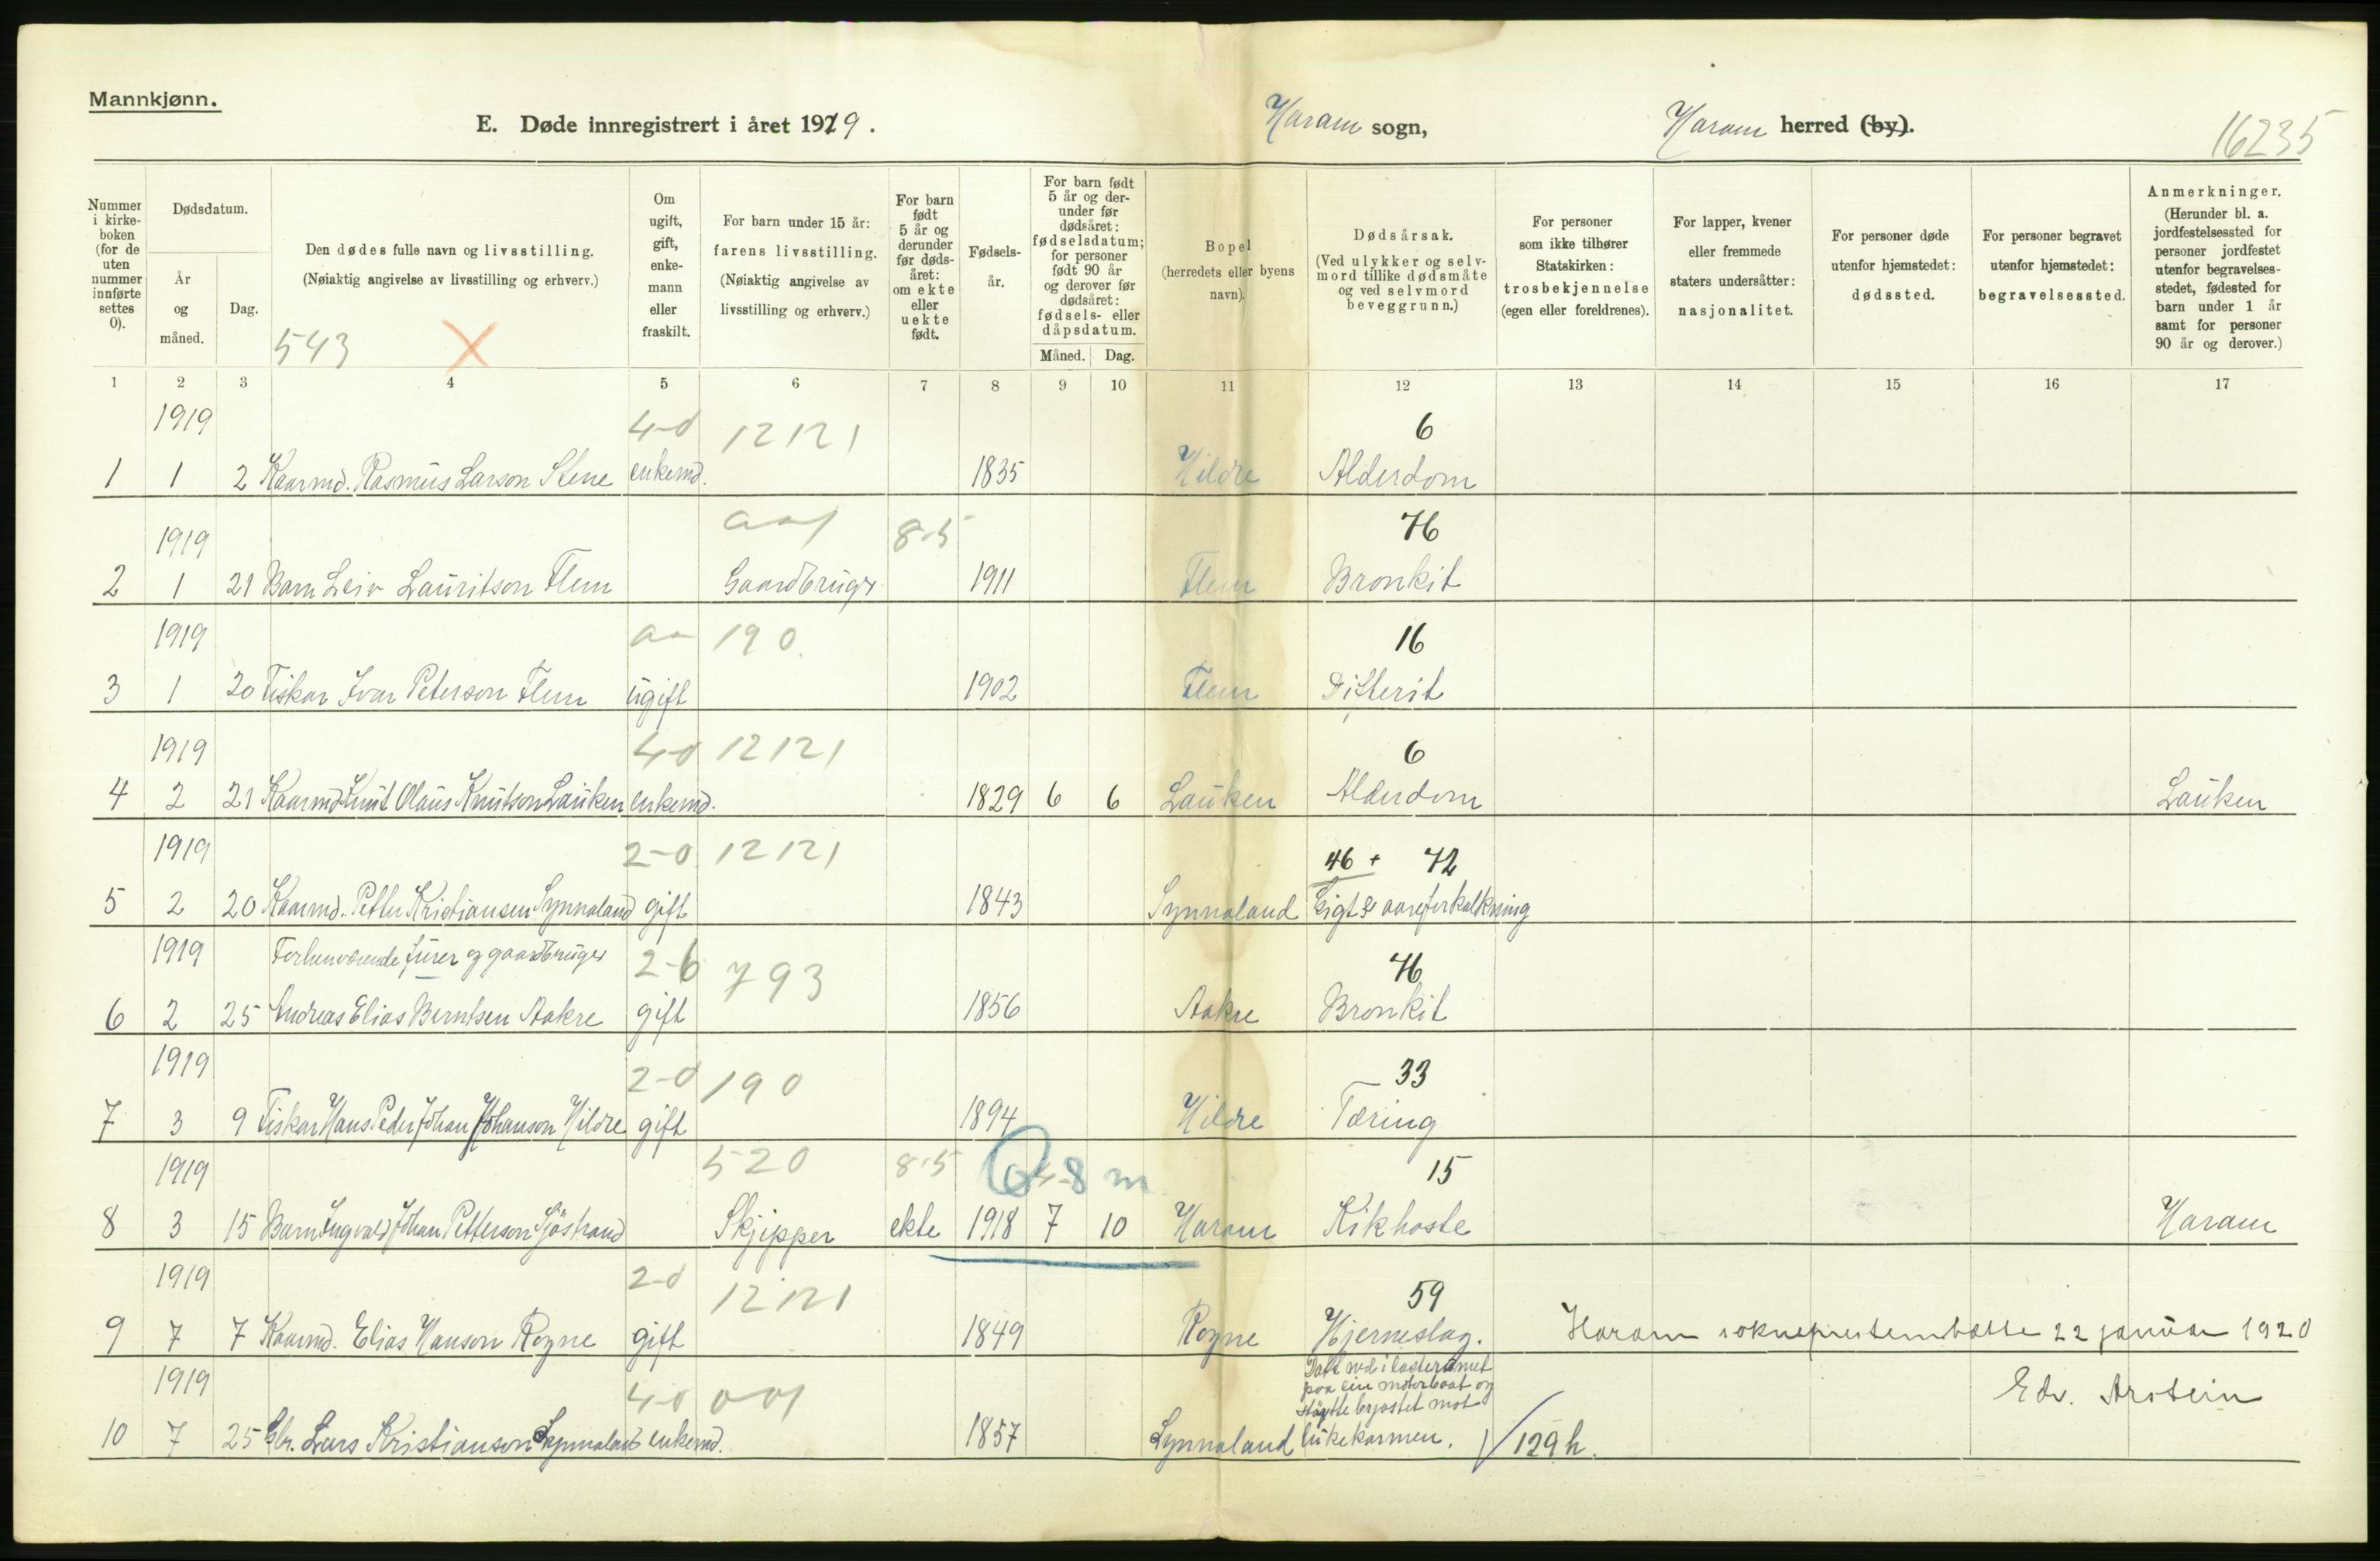 Mannkjønn.
E. Døde innregistrert i året 1919.
Haram sogn,
Haram herred (by).
16235
Nummer i kirkeboken (for de uten nummer innførte settes 0).
Dødsdatum.
År og måned.
Dag.
Den dødes fulle navn og livsstilling.
(Nøiaktig angivelse av livsstilling og erhverv.)
543
Om ugift, gift, enkemann eller fraskilt.
For barn under 15 år: farens livsstilling.
(Nøiaktig angivelse av livsstilling og erhverv.)
For barn født 5 år og derunder før dødsåret: om ekte eller uekte født.
Fødselsår.
For barn født 5 år og derunder før dødsåret: fødselsdatum; for personer født 90 år og derover før dødsåret: fødsels- eller dåpsdatum.
Måned. Dag.
Bopel (herredets eller byens navn).
Dødsårsak.
(Ved ulykker og selvmord tillike dødsmåte og ved selvmord beveggrunn.)
For personer som ikke tilhører Statskirken: trosbekjennelse (egen eller foreldrenes).
For lapper, kvener eller fremmede staters undersåtter: nasjonalitet.
For personer døde utenfor hjemstedet: dødssted.
For personer begravet utenfor hjemstedet: begravelsessted.
Anmerkninger.
(Herunder bl. a. jordfestelsessted for personer jordfestet utenfor begravelsesstedet, fødested for barn under 1 år samt for personer 90 år og derover.)
1 2 3 4 5 6 7 8 9 10 11 12 13 14 15 16 17
1919 4-0 12121 6
1 1 2 Kaarmd. Rasmus Larson Stene enkemd. 1835 Hildre Alderdom
1919 8.5 76
2 1 21 Barn Leiv Lauritson Flem Gaardbruger 1911 Flem Bronkit
1919 190 16
3 1 20 Fiskar Ivar Peterson Flem ugift 1902 Flem Difterit
1919 4-0 12121 6
4 2 21 Kaarmd Knut Olaus Knutson Lauken enkemd. 1829 6 6 Lauken Alderdom Lauken
1919 2-0 12121 46 + 72
5 2 20 Kaarmd. Petter Kristiansen Synnaland gift 1843 Synnaland Gigt & aareforkalkning
1919 Forhenværende furer og gaardbruger 2-6 793 76
6 2 25 Andreas Elias Berntsen Aakre gift 1856 Aakre Bronkit
1919 2-0 190 33
7 3 9 Fiskar Hans Peder Johan Johanson Hildre gift 1894 Hildre Tæring
1919 520 8.5 8 m 15
8 3 15 Barn Ingvald Johan Petterson Sjöstrand Skjipper ekte 1918 7 10 Haram Kikhoste Haram
1919 2-0 12121 59
9 7 7 Kaarmd. Elias Hanson Rogne gift 1849 Rogne Hjerneslag.
Haram sokneprestembætte 22 januar 1920
Edv. Arstein
1919 4-0 Datt ned i lasterumet
paa ein motorbaat og
støytte brjostet mot
10 7 25 Gbr. Lars Kristianson Synnaland enkemd. 1857 Synnaland lukekarmen. 129 h.